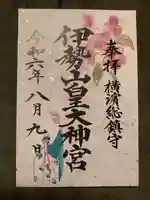 奉拝 横濱総鎮守
伊勢山皇大神宮
令和六年八月九日